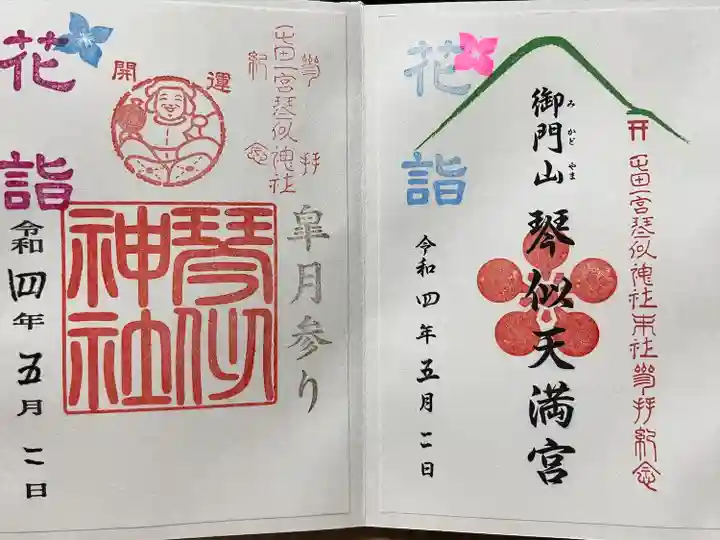 屯田一宮琴似神社末社參拝紀念
御門山 琴似天満宮
みかどやま
花詣
令和四年五月二日
參拝
屯田一宮琴似神社
紀念
開運
皐月参り
琴似
神社
花詣
令和四年五月二日